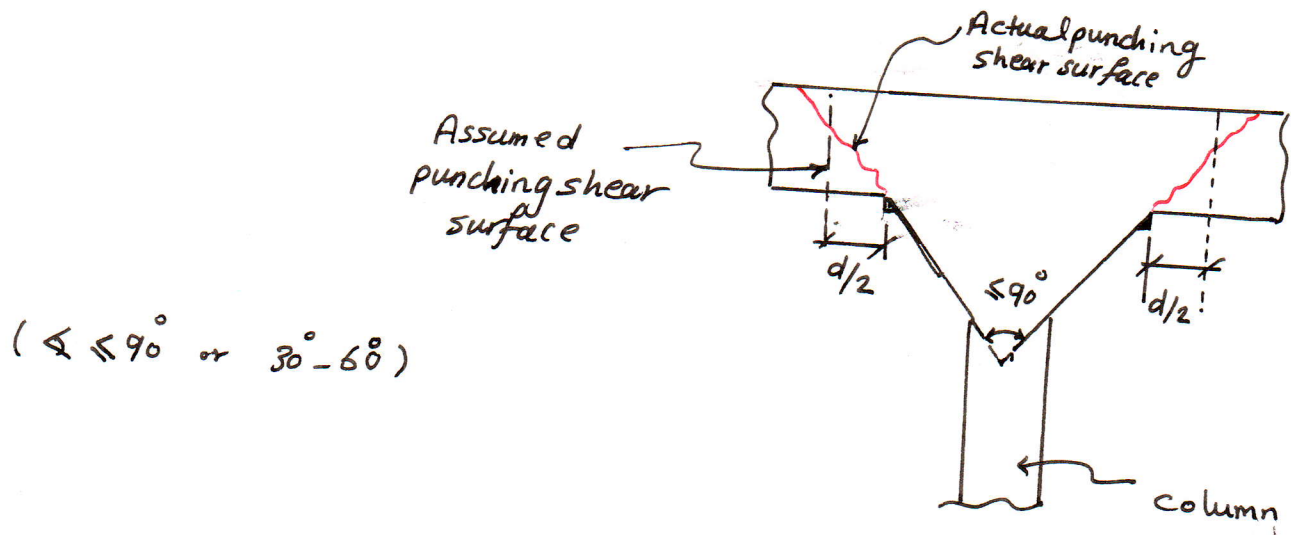 Actual punching
shear surface
Assumed
punching shear
surface
d/2
≤90°
d/2
( ∢ ≤90° or 30°-60° )
column